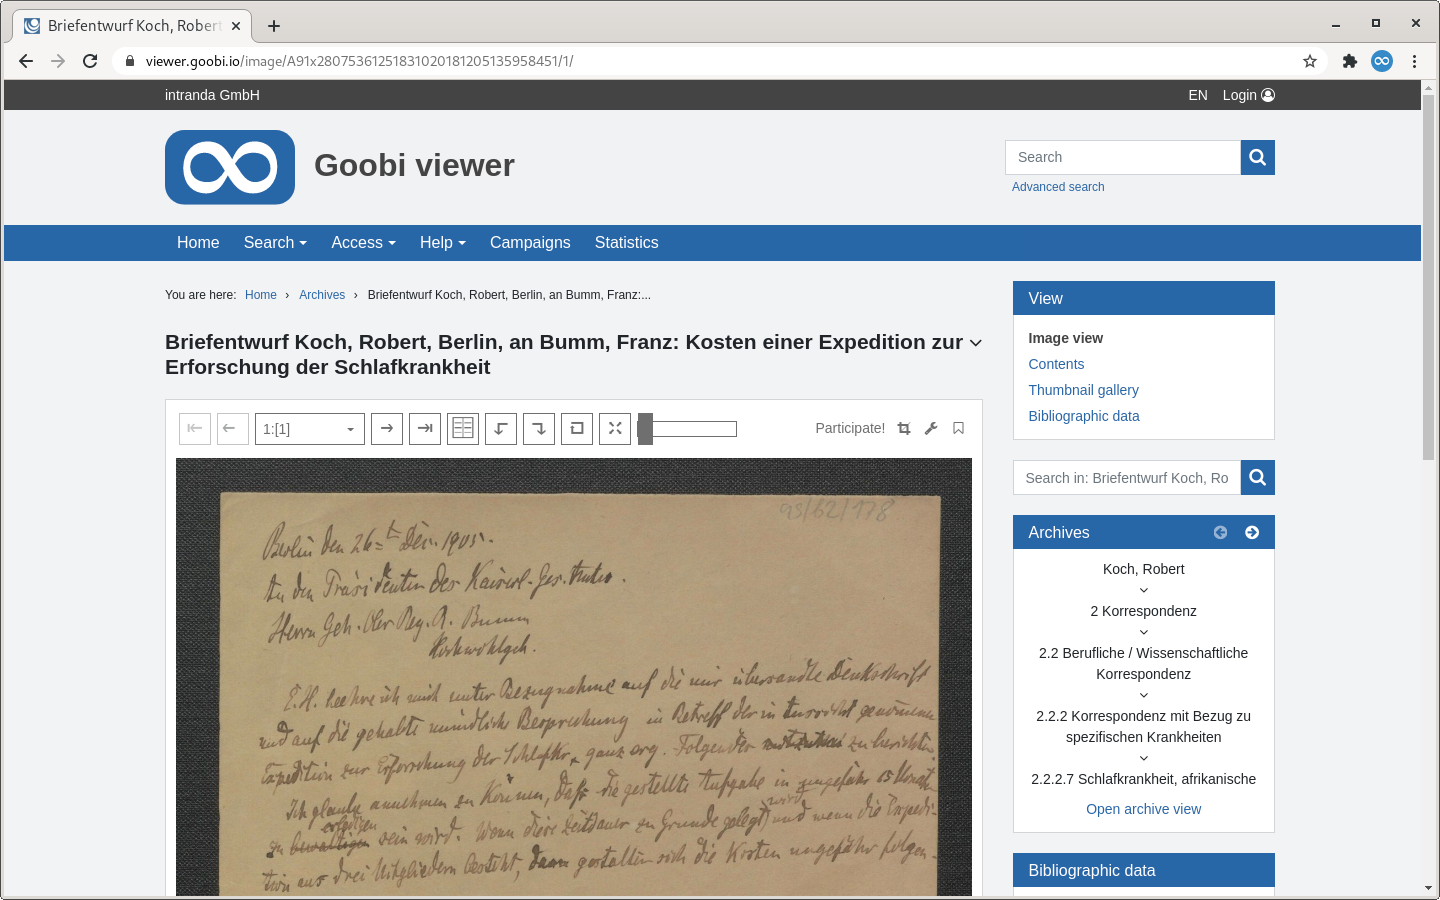 Briefentwurf Koch, Rober
viewer.goobi.io/image/A91x28075361251831020181205135958451/1/
intranda GmbH
EN
Login
Goobi viewer
Search
Advanced search
Home
Search
Access
Help
Campaigns
Statistics
You are here: Home › Archives › Briefentwurf Koch, Robert, Berlin, an Bumm, Franz:...
Briefentwurf Koch, Robert, Berlin, an Bumm, Franz: Kosten einer Expedition zur
Erforschung der Schlafkrankheit
1:[1]
Participate!
95/62/178
Berlin den 26t Dec. 1905.
An den Präsidenten des Kaiserl. Ges. Amtes.
Herrn Geh. Ober Reg. R. Bumm
Hochwohlgeb.
E. H. beehre ich mich unter Bezugnahme auf die mir übersandte Denkschrift
und auf die gehabte mündliche Besprechung in Betreff der in Aussicht genommenen
Expedition zur Erforschung der Schlafkr. ganz erg. Folgendes zu berichten.
Ich glaube annehmen zu können, daß die gestellte Aufgabe in ungefähr Monat
erledigen
wird
zu bewältigen sein wird. Wenn diese Zeitdauer zu Grunde gelegt und wenn die Expedi-
tion aus drei Mitgliedern besteht, dann gestalten sich die Kosten ungefähr folgen-
View
Image view
Contents
Thumbnail gallery
Bibliographic data
Search in: Briefentwurf Koch, Ro
Archives
Koch, Robert
2 Korrespondenz
2.2 Berufliche / Wissenschaftliche
Korrespondenz
2.2.2 Korrespondenz mit Bezug zu
spezifischen Krankheiten
2.2.2.7 Schlafkrankheit, afrikanische
Open archive view
Bibliographic data